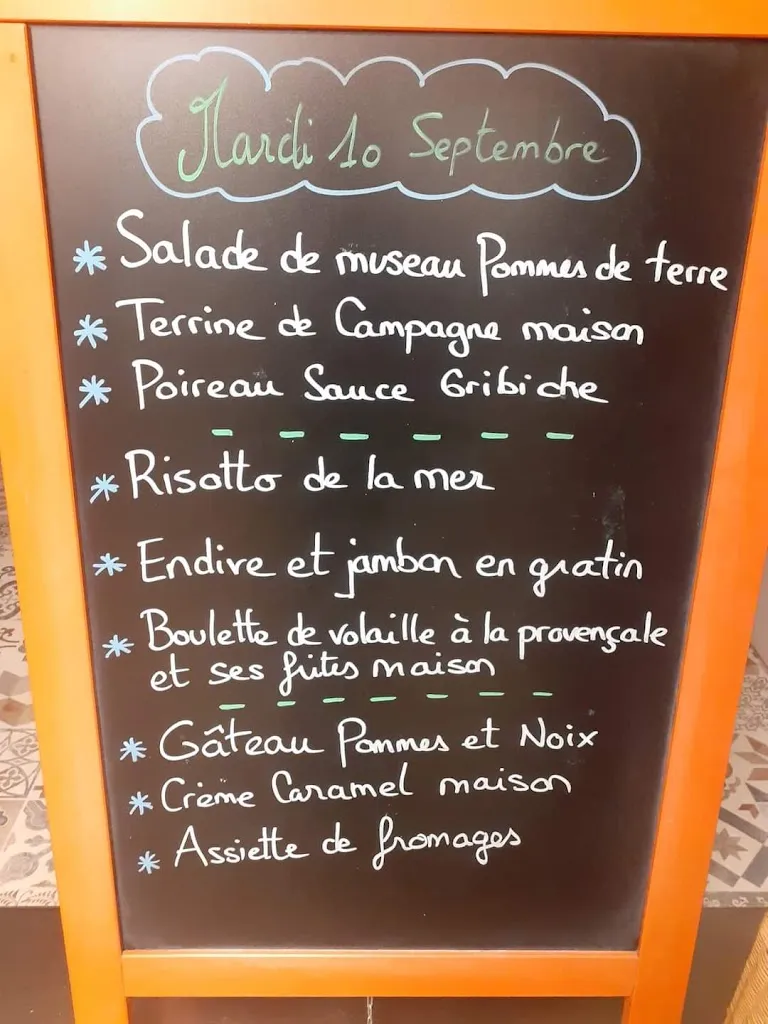 Mardi 10 Septembre
* Salade de museau Pommes de terre
* Terrine de Campagne maison
* Poireau Sauce Gribiche
* Risotto de la mer
* Endive et jambon en gratin
* Boulette de volaille à la provençale
et ses frites maison
* Gâteau Pommes et Noix
* Crème Caramel maison
* Assiette de fromages